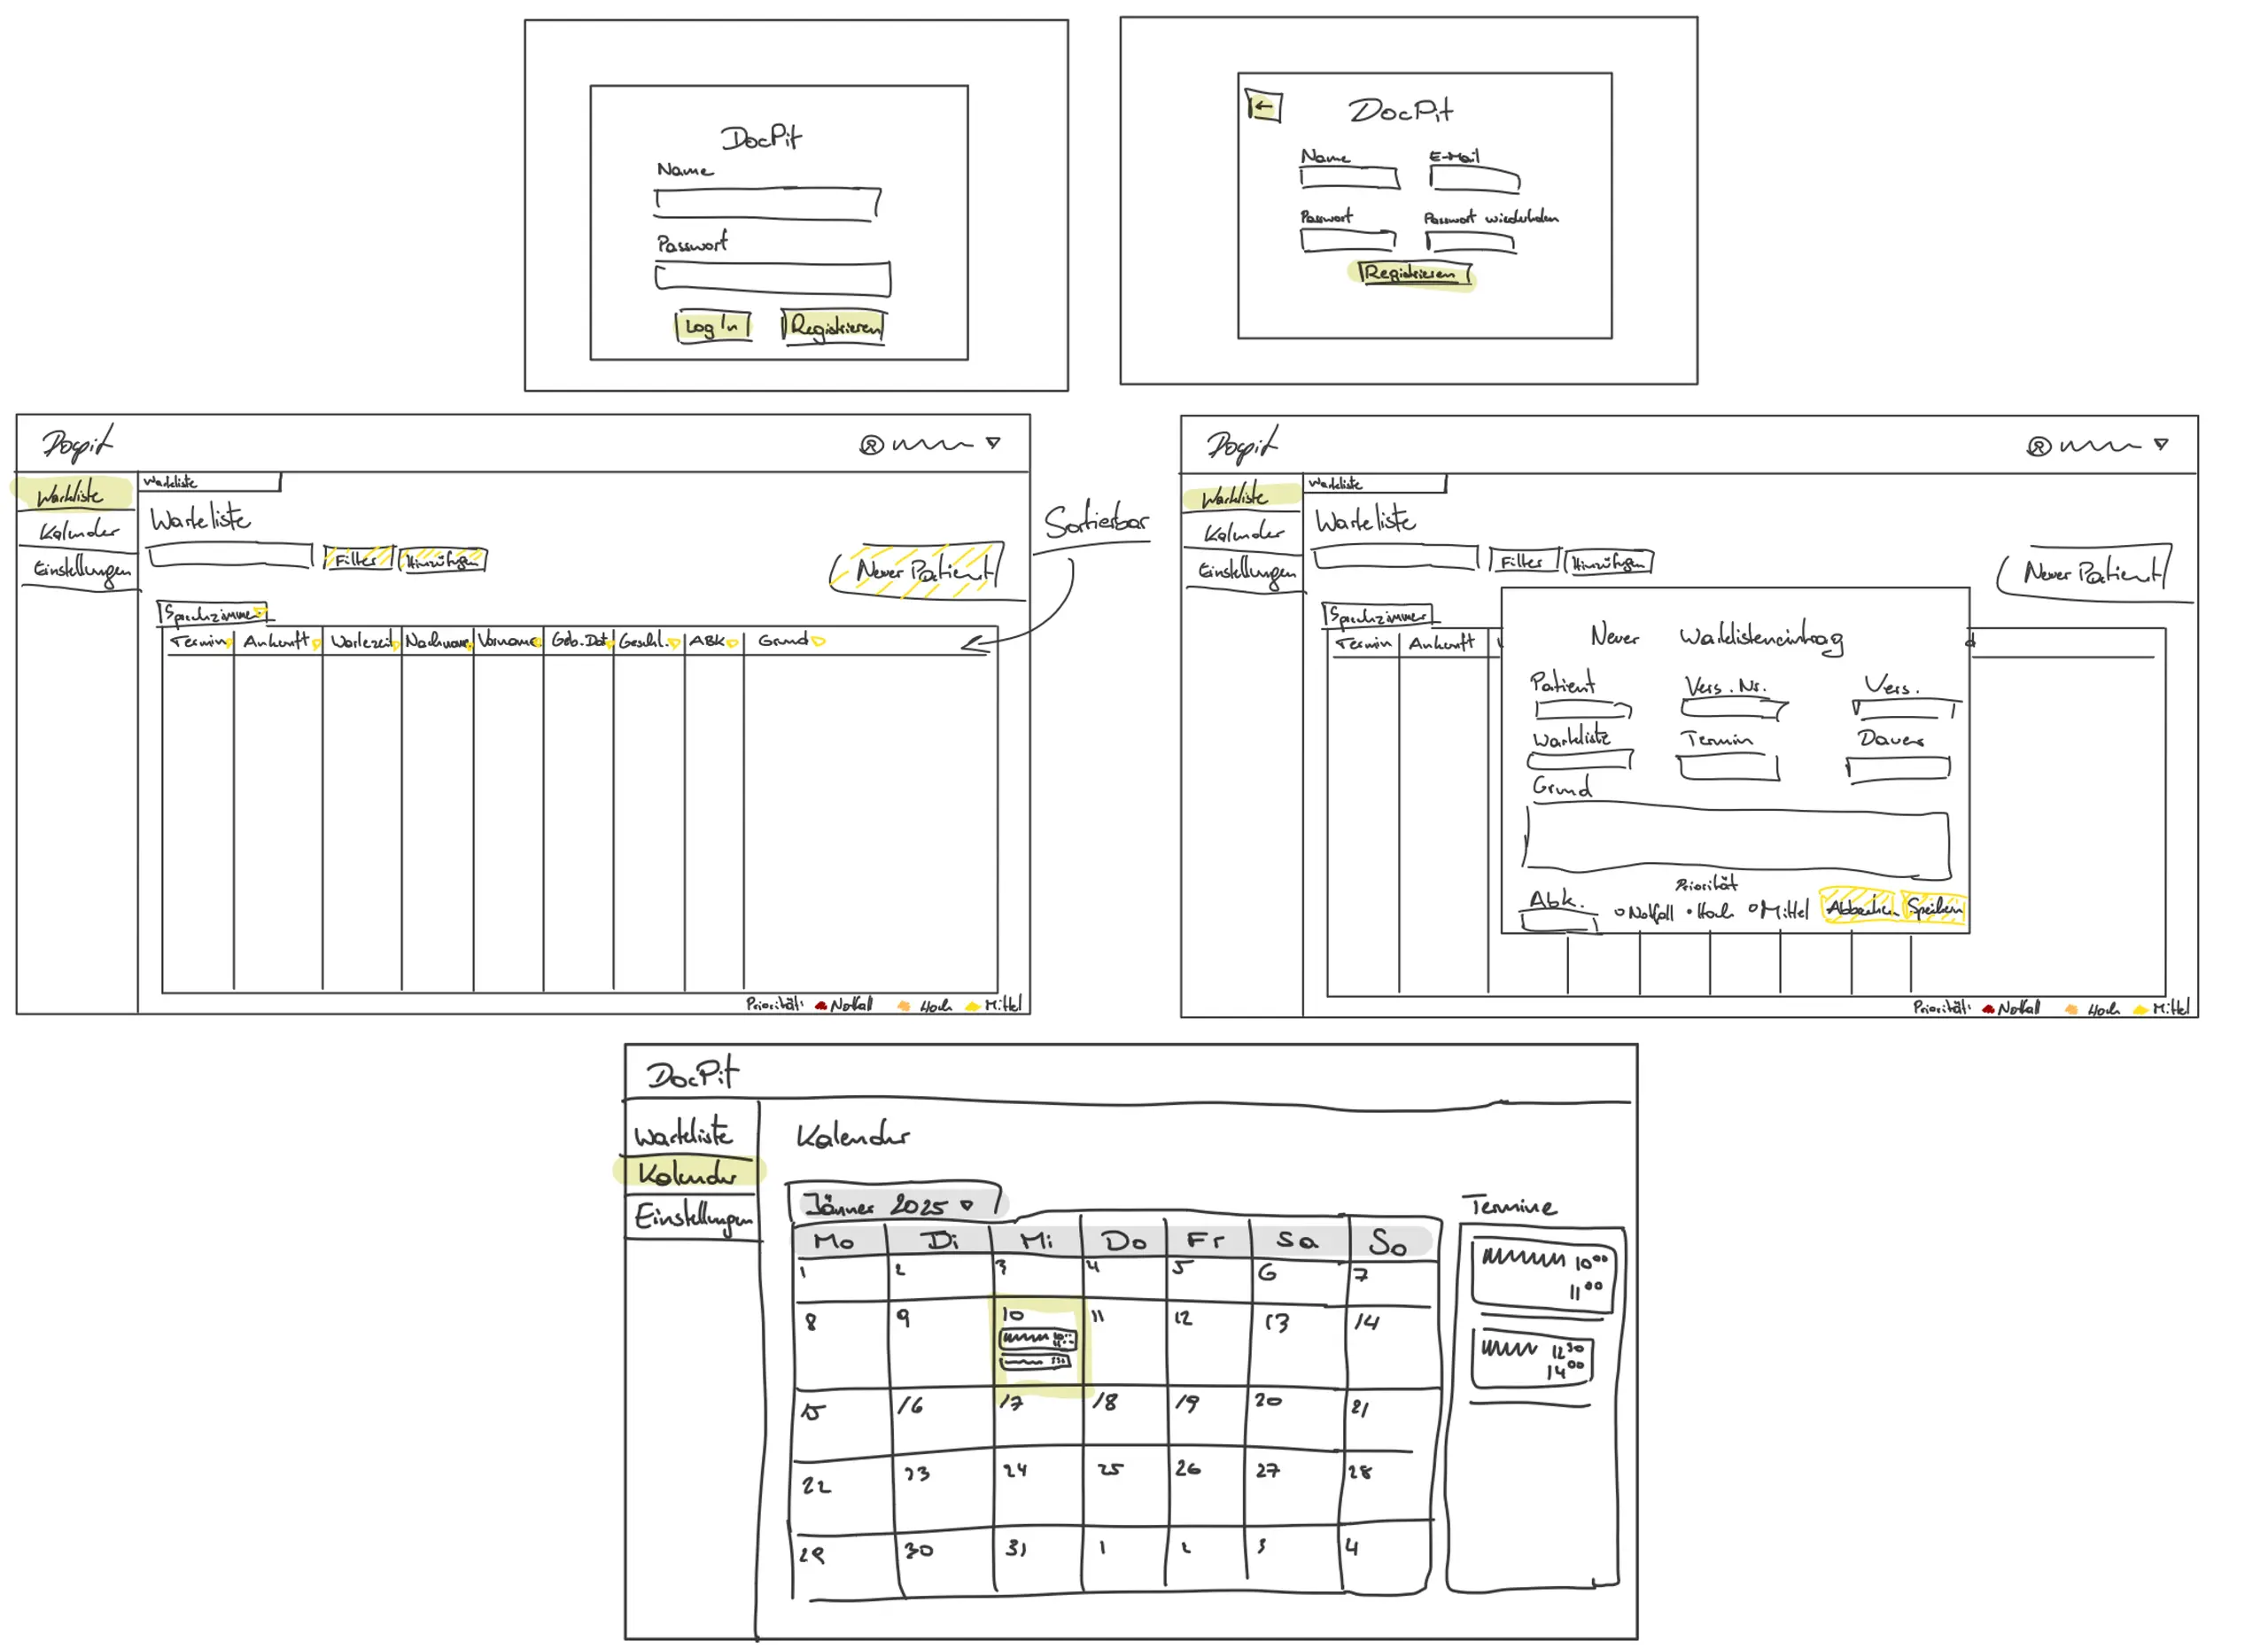 DocPit
Name
Passwort
Log In Registrieren
←
DocPit
Name E-Mail
Passwort Passwort wiederholen
Registrieren
Docpit
Warteliste
Kalender
Einstellungen
Warteliste
Warteliste
Filter Hinzufügen
Neuer Patient
Sprechzimmer
Termin Ankunft Wartezeit Nachname Vorname Geb.Dat Geschl. ABK Grund
Priorität: Notfall Hoch Mittel
Sortierbar
Docpit
Warteliste
Kalender
Einstellungen
Warteliste
Warteliste
Filter Hinzufügen
Neuer Patient
Sprechzimmer
Termin Ankunft
Neuer Wartelisteneintrag
Patient Vers. Nr. Vers.
Warteliste Termin Dauer
Grund
Priorität
Abk. Notfall Hoch Mittel Abbrechen Speichern
Priorität: Notfall Hoch Mittel
DocPit
Warteliste
Kalender
Einstellungen
Kalender
Jänner 2025
Mo Di Mi Do Fr Sa So
1 2 3 4 5 6 7
8 9 10 11 12 13 14
15 16 17 18 19 20 21
22 23 24 25 26 27 28
29 30 31 1 2 3 4
Termine
10⁰⁰
11⁰⁰
12³⁰
14⁰⁰